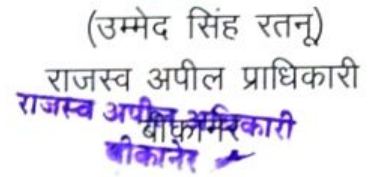 (उम्मेद सिंह रतनू)
राजस्व अपील प्राधिकारी
बीकानेर
राजस्व अपील अधिकारी
बीकानेर